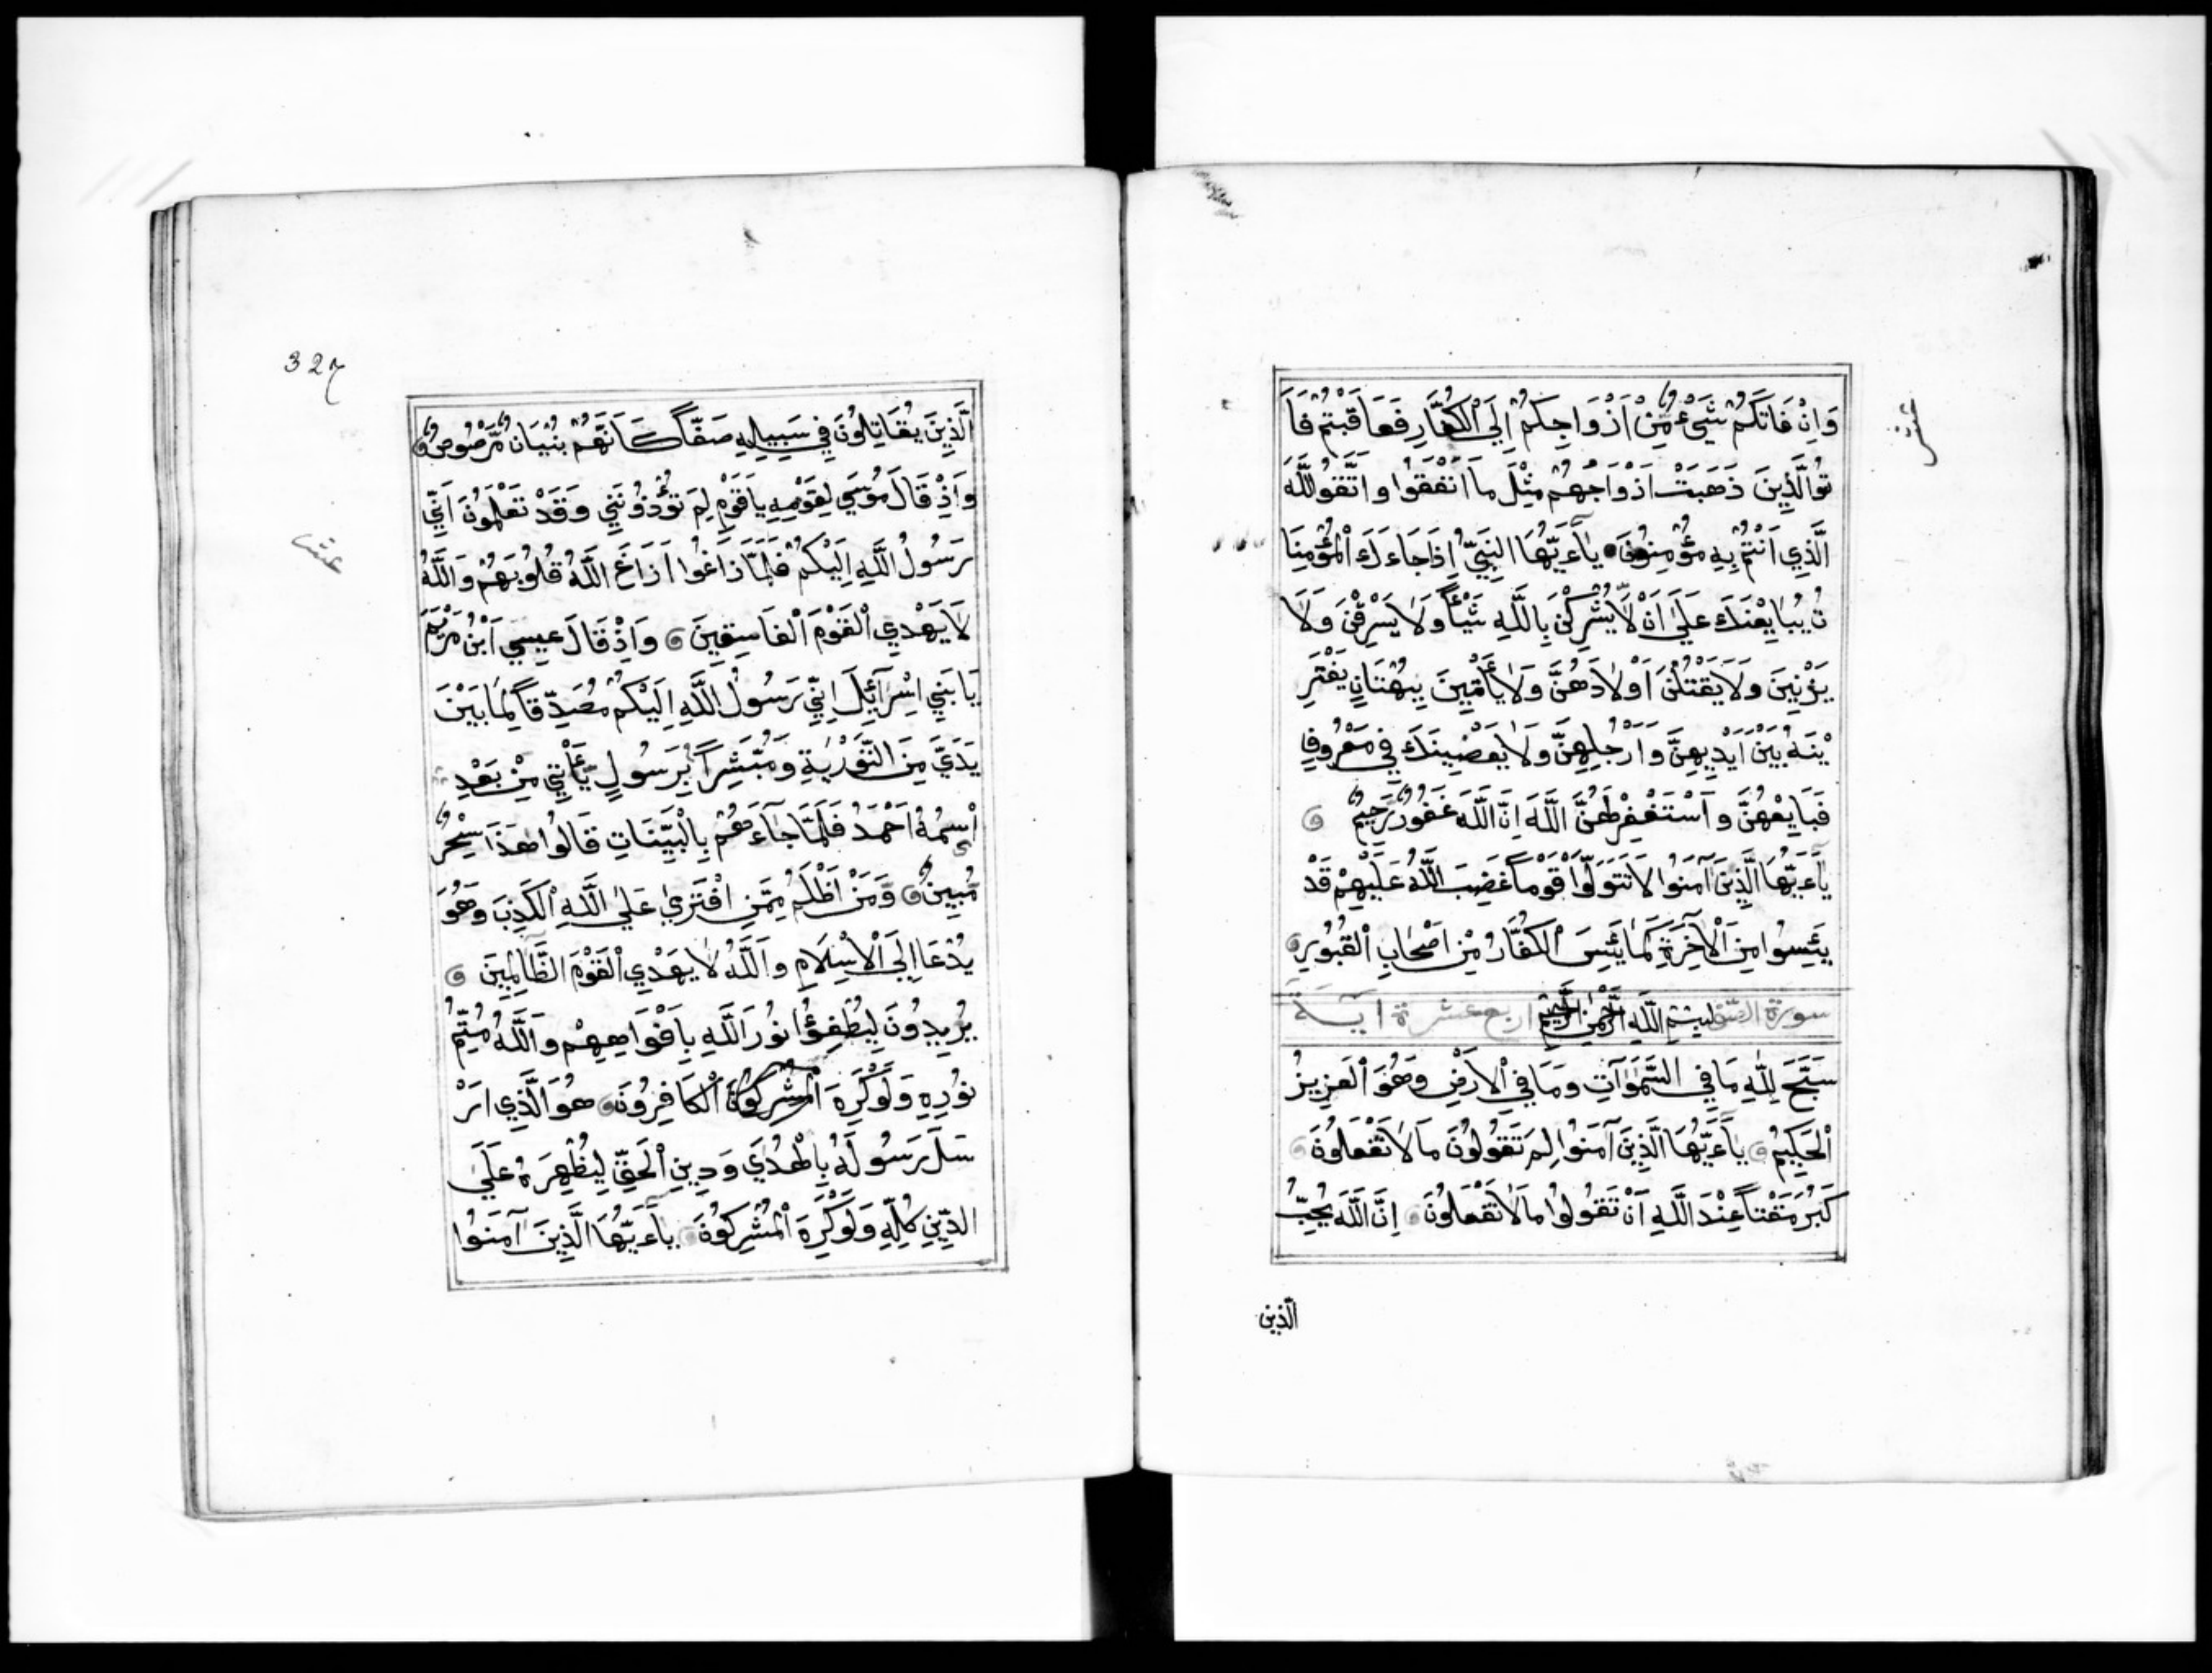 وَاِنْ فَاتَكُمْ شَيْءٌ مِّنْ اَزْوَاجِكُمْ اِلَي الْكُفَّارِ فَعَاقَبْتُمْ فَاَ
تُوا الَّذِينَ ذَهَبَتْ اَزْوَاجُهُمْ مِثْلَ مَا اَنْفَقُوا وَاتَّقُوا اللَّهَ
الَّذِي اَنْتُمْ بِهِ مُؤْمِنُونَ يَآءَيُّهَا النَّبِيُّ اِذَا جَاءَكَ الْمُؤْمِنَا
تُ يُبَايِعْنَكَ عَلَيٰ اَنْ لَّا يُشْرِكْنَ بِاللَّهِ شَيْئًا وَلَا يَسْرِقْنَ وَلَا
يَزْنِينَ وَلَا يَقْتُلْنَ اَوْلَادَهُنَّ وَلَا يَأْتِينَ بِبُهْتَانٍ يَفْتَرِ
يْنَهُ بَيْنَ اَيْدِيهِنَّ وَاَرْجُلِهِنَّ وَلَا يَعْصِينَكَ فِي مَعْرُوفٍ
فَبَايِعْهُنَّ وَاسْتَغْفِرْ لَهُنَّ اللَّهَ اِنَّ اللَّهَ غَفُورٌ رَّحِيمٌ
يَآءَيُّهَا الَّذِينَ آمَنُوا لَا تَتَوَلَّوْا قَوْمًا غَضِبَ اللَّهُ عَلَيْهِمْ قَدْ
يَئِسُوا مِنَ الْآخِرَةِ كَمَا يَئِسَ الْكُفَّارُ مِنْ اَصْحَابِ الْقُبُورِ
سورة الصف بِسْمِ اللَّهِ الرَّحْمٰنِ الرَّحِيمِ اربع عشرة آية
سَبَّحَ لِلّٰهِ مَا فِي السَّمٰوَاتِ وَمَا فِي الْاَرْضِ وَهُوَ الْعَزِيزُ
الْحَكِيمُ يَآءَيُّهَا الَّذِينَ آمَنُوا لِمَ تَقُولُونَ مَا لَا تَفْعَلُونَ
كَبُرَ مَقْتًا عِنْدَ اللَّهِ اَنْ تَقُولُوا مَا لَا تَفْعَلُونَ اِنَّ اللَّهَ يُحِبُّ
الّذين
عشر
327
الَّذِينَ يُقَاتِلُونَ فِي سَبِيلِهِ صَفًّا كَاَنَّهُمْ بُنْيَانٌ مَّرْصُوصٌ
وَاِذْ قَالَ مُوسَي لِقَوْمِهِ يَا قَوْمِ لِمَ تُؤْذُونَنِي وَقَدْ تَعْلَمُونَ اَنِّي
رَسُولُ اللَّهِ اِلَيْكُمْ فَلَمَّا زَاغُوا اَزَاغَ اللَّهُ قُلُوبَهُمْ وَاللَّهُ
لَا يَهْدِي الْقَوْمَ الْفَاسِقِينَ وَاِذْ قَالَ عِيسَي ابْنُ مَرْيَمَ
يَا بَنِي اِسْرَآئِلَ اِنِّي رَسُولُ اللَّهِ اِلَيْكُمْ مُصَدِّقًا لِمَا بَيْنَ
يَدَيَّ مِنَ التَّوْرٰيةِ وَمُبَشِّرًا بِرَسُولٍ يَّأْتِي مِنْ بَعْدِ
اسْمُهُ اَحْمَدُ فَلَمَّا جَآءَهُمْ بِالْبَيِّنَاتِ قَالُوا هٰذَا سِحْرٌ
مُبِينٌ وَمَنْ اَظْلَمُ مِمَّنِ افْتَرَيٰ عَلَي اللَّهِ الْكَذِبَ وَهُوَ
يُدْعَا اِلَي الْاِسْلَامِ وَاللَّهُ لَا يَهْدِي الْقَوْمَ الظَّالِمِينَ
يُرِيدُونَ لِيُطْفِؤُا نُورَ اللَّهِ بِاَفْوَاهِهِمْ وَاللَّهُ مُتِمُّ
نُورِهِ وَلَوْ كَرِهَ الْمُشْرِكُونَ الْكَافِرُونَ هُوَ الَّذِي اَرْ
سَلَ رَسُولَهُ بِالْهُدٰي وَدِينِ الْحَقِّ لِيُظْهِرَهُ عَلَي
الدِّينِ كُلِّهِ وَلَوْ كَرِهَ الْمُشْرِكُونَ يَآءَيُّهَا الَّذِينَ آمَنُوا
عشر